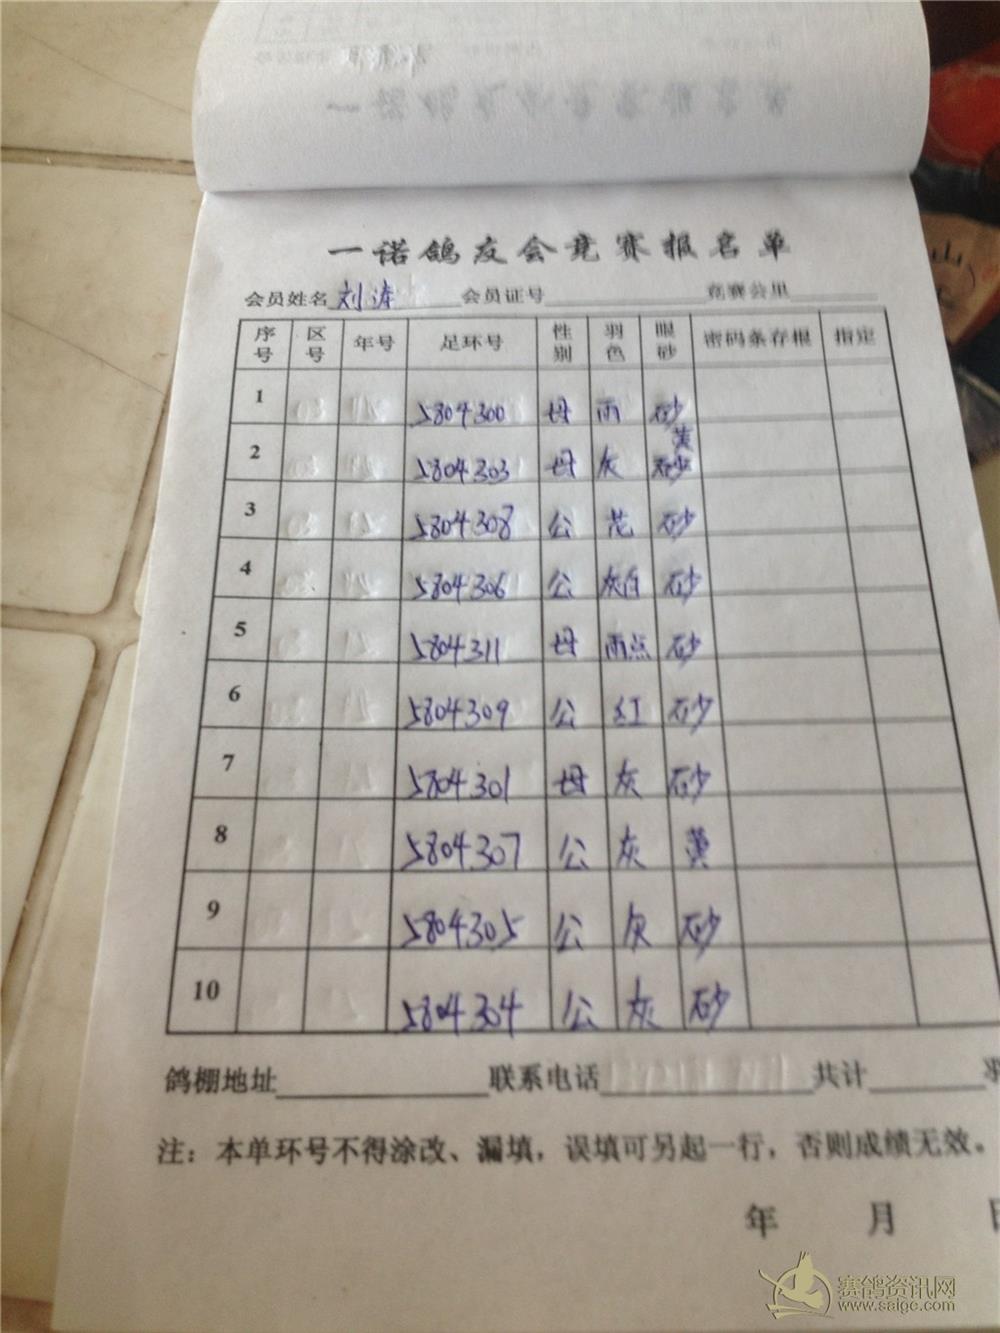 一诺鸽友会竞赛报名单
会员姓名 刘涛 会员证号 竞赛公里
序号 区号 年号 足环号 性别 羽色 眼砂 密码条存根 指定
1 5804300 母 雨 砂
2 5804303 母 灰 黄砂
3 5804308 公 花 砂
4 5804306 公 灰白 砂
5 5804311 母 雨点 砂
6 5804309 公 红 砂
7 5804301 母 灰 砂
8 5804307 公 灰 黄
9 5804305 公 灰 砂
10 5804304 公 灰 砂
鸽棚地址 联系电话 共计 羽
注：本单环号不得涂改、漏填，误填可另起一行，否则成绩无效。
年 月 日
赛鸽资讯网
www.saigc.com